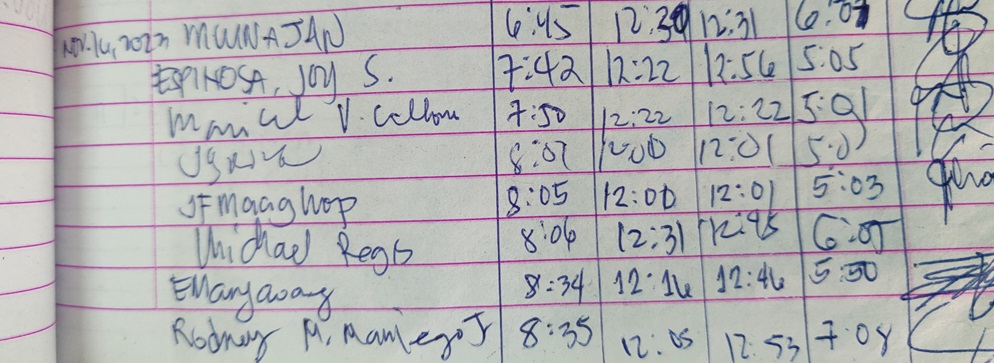 Nov. 14, 2023 MUNAJAN 6:45 12:30 12:31 6:07
ESPINOSA, JOY S. 7:42 12:22 12:56 5:05
Maricel V. 7:50 12:22 12:22 5:01
8:07 12:00 12:01 5:01
JFMaaghop 8:05 12:00 12:01 5:03
Michael Regis 8:06 12:31 12:45 6:05
EManjavang 8:34 12:16 12:46 5:50
Rodney M. Maniego Jr 8:35 12:05 12:53 7:08